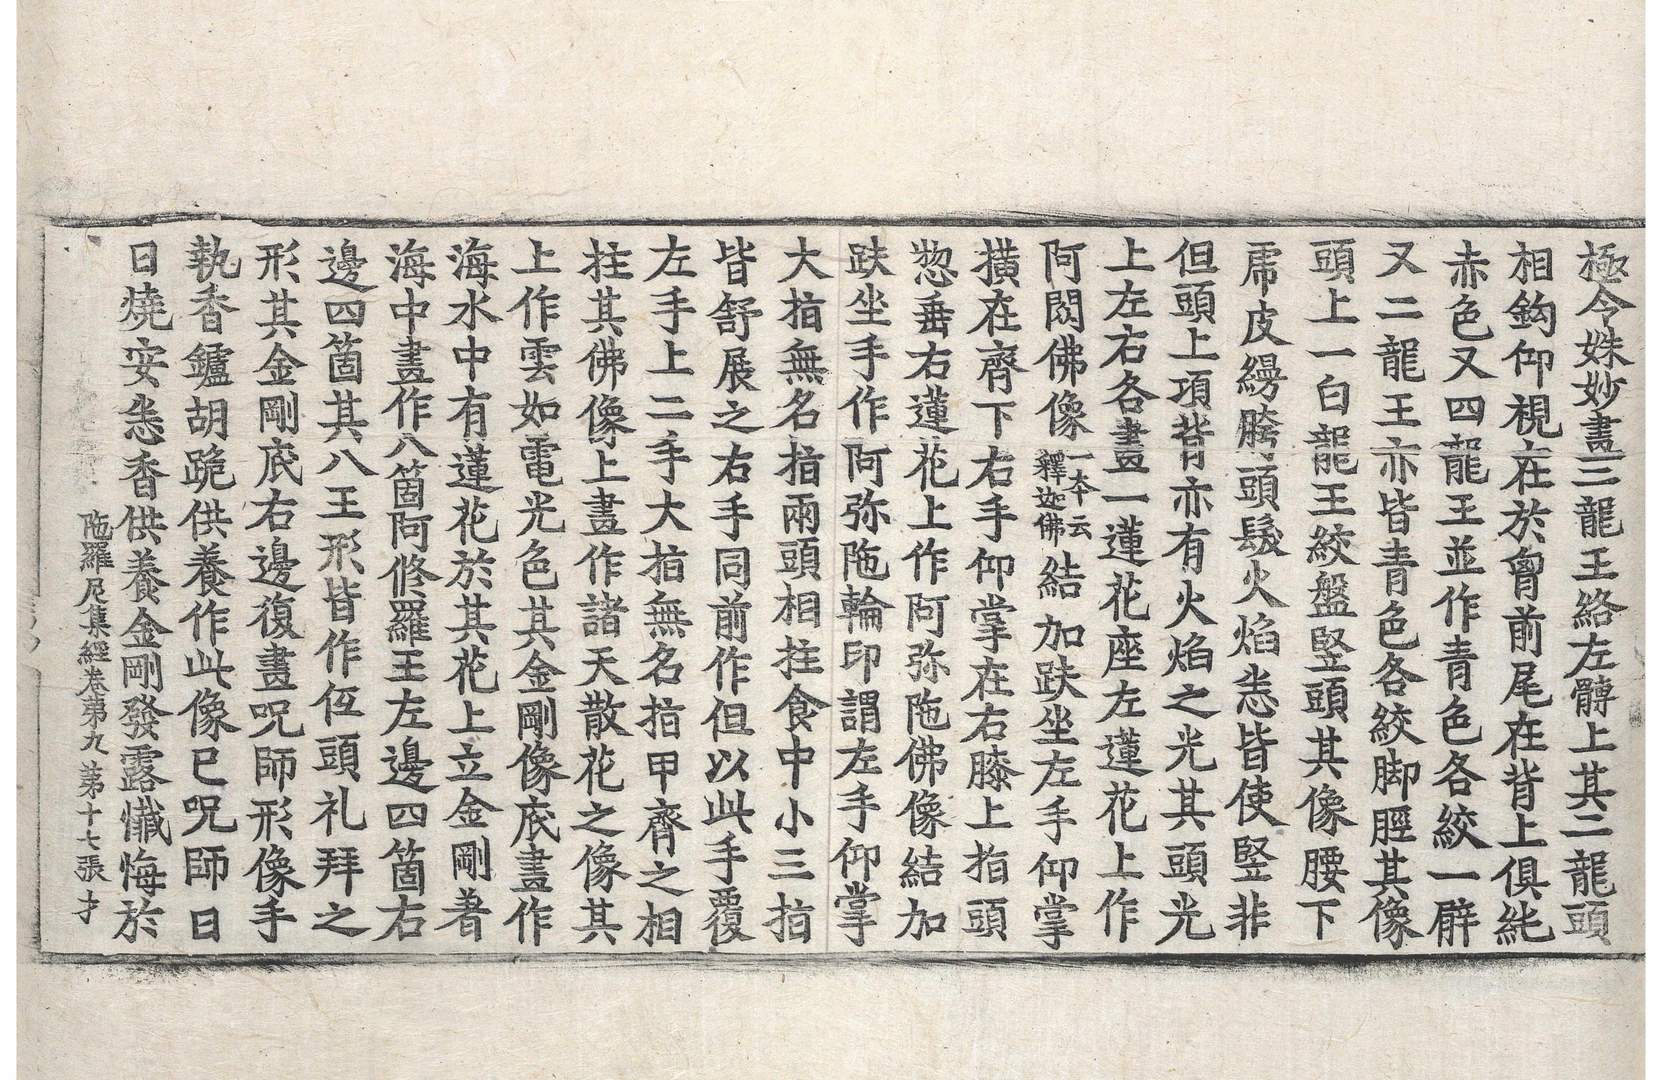 極令姝妙畫三龍王絡左髆上其二龍頭
相鈎仰視在於胷前尾在背上俱純
赤色又四龍王並作青色各絞一臂
又二龍王亦皆青色各絞脚脛其像
頭上一白龍王絞盤竪頭其像腰下
虎皮縵胯頭髮火焰悉皆使竪非
但頭上項背亦有火焰之光其頭光
上左右各畫一蓮花座左蓮花上作
阿閦佛像一本云釋迦佛結加趺坐左手仰掌
橫在齊下右手仰掌在右膝上指頭
惣垂右蓮花上作阿弥陁佛像結加
趺坐手作阿弥陁輪印謂左手仰掌
大指無名指兩頭相拄食中小三指
皆舒展之右手同前作但以此手覆
左手上二手大指無名指甲齊之相
拄其佛像上畫作諸天散花之像其
上作雲如電光色其金剛像底畫作
海水中有蓮花於其花上立金剛著
海中畫作八箇阿修羅王左邊四箇右
邊四箇其八王形皆作仾頭礼拜之
形其金剛底右邊復畫呪師形像手
執香鑪胡跪供養作此像已呪師日
日燒安悉香供養金剛發露懺悔於
陁羅尼集經卷第九 第十七張 才